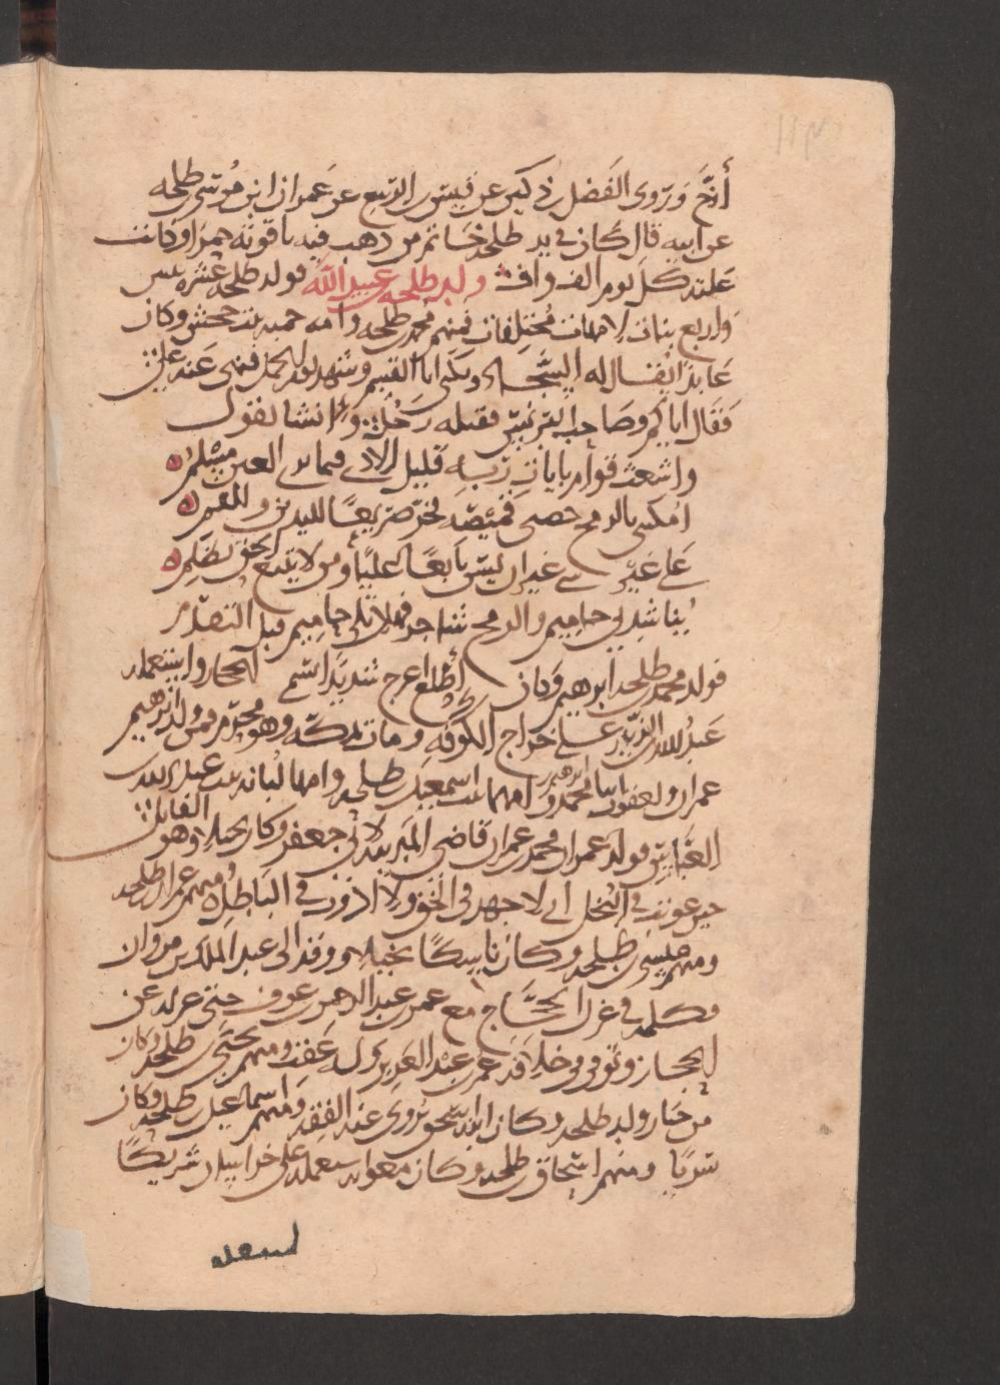 أنخ وروى الفضل بن دكين عن قيس بن الربيع عن عمران ابن موسى بن طلحة
عن ابيه قال كان في يد طلحة خاتم من ذهب فيه ياقوته حمرا وكانت
غلته كل يوم الف واف ولد طلحة بن عبيد الله فولد طلحة عشرة بنين
واربع بنات لامهات مختلفات فمنهم محمد بن طلحه وامه حمنه بنت جحش وكان
عابدا يقال له السجاد ويكنى ابا القسم وشهد يوم الجمل فنهى عنه علي
فقال اياكم وصاحب البرنس فقتله رجل وانشا يقول
واشعث قوام بايات ربه قليل الاذى فيما ترى العين مسلم
امكنني بالرمح حصى قميصه فخر صريعا لليدين وللفم
على غير شي غير ان ليس تابعا عليا ومن لا يتبع الحق يظلم
يناشدني حاميم والرمح شاجر فهلا تلى حاميم قبل التقدم
فولد محمد بن طلحة ابرهيم وكان اضلع اعرج شديدا اسم الحجاز واستعمله
عبد الله بن الزبير على خراج الكوفة ومات بمكة وهو محرم فمن ولد ابرهيم
عمران ويعقوب ابنا محمد بن ابرهيم امهما بنت اسمعيل بن طلحه وامها لبابة بنت عبد الله بن
العباس فولد عمران محمد بن عمران قاضي المدينة لابي جعفر وكان بخيلا وهو القايل
حين عوتب في البخل اني لا اجهد في الحق ولا اذوب في الباطل ومنهم عمران بن طلحه
ومنهم عيسى بن طلحه وكان ناسكا بخيلا ووفد الى عبد الملك بن مروان
فكلمه في عزل الحجاج مع عمر بن عبد الرحمن بن عوف حتى عزله عن
الحجاز وتوفي في خلافة عمر بن عبد العزيز وله عقب ومنهم يحيى بن طلحه وكان
من خيار ولد طلحة وكان ابنه اسحق يروى عنه الفقه ومنهم اسماعيل بن طلحه وكان
سريا ومنهم اسحاق بن طلحه وكان معوية استعمله على خراسان شريكا
لسعيد